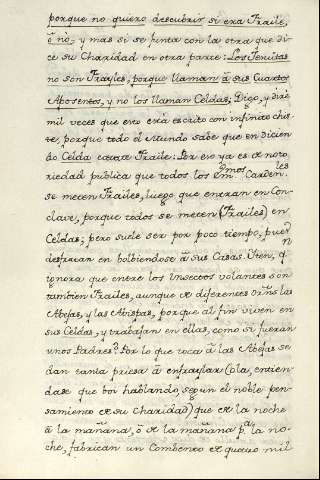 porque no quiero descubrir si era Fraile,
ò no, y mas si se junta con la otra que di-
ce su Charidad en otra parte: Los Jesuitas
no son Frayles, porque llaman à sus Cuartos
Aposentos, y no los llaman Celdas; Digo, y diré
mil veces que esto está escrito con infinito chis-
te, porque todo el Mundo sabe que en dicien
do Celda Fraile: Por eso ya es de noto
riedad publica que todos los Em.mos Carden.les
se mecen Frailes, luego que entran en Con-
clave, porque todos se mecen (Frailes) en
Celdas; pero suele ser por poco tiempo, pues
desfracan en bolbiendose à sus Casas. Iten, q
ignora que entre los Insectos volantes son
tambien Frailes, aunque de diferentes las
Abejas, y las Abispas, porque al fin viven en
sus Celdas, y trabajan en ellas, como si fueran
unos Padres? Por lo que toca à las Abejas se
dan tanta priesa à enfraylar (ola, entien-
dase que boi hablando, segun el noble pen-
samiento de su Charidad) que de la noche
à la mañana, ò de la mañana p.a la no-
che, fabrican un Combento de quatro mil